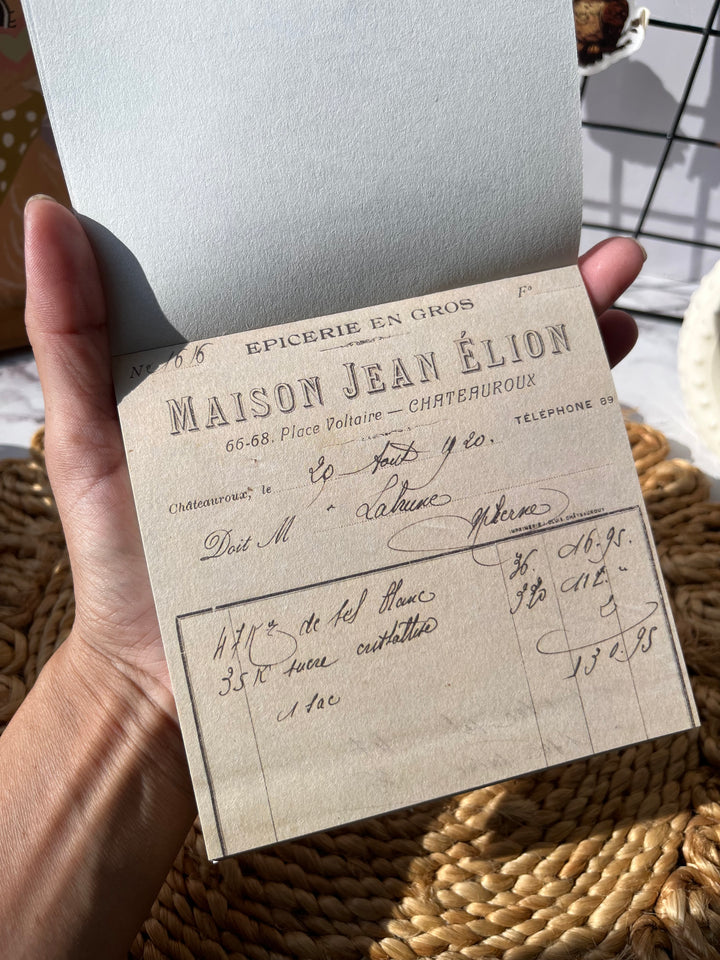 EPICERIE EN GROS
Fº
Nº 1616
MAISON JEAN ÉLION
66-68, Place Voltaire — CHATEAUROUX
TÉLÉPHONE 89
Châteauroux, le 20 Aout 1920.
Doit M " Labrune
47 Kº de sel blanc 36. 16.95.
35 K sucre cristallisé 320 112. "
1 sac 2
130.95